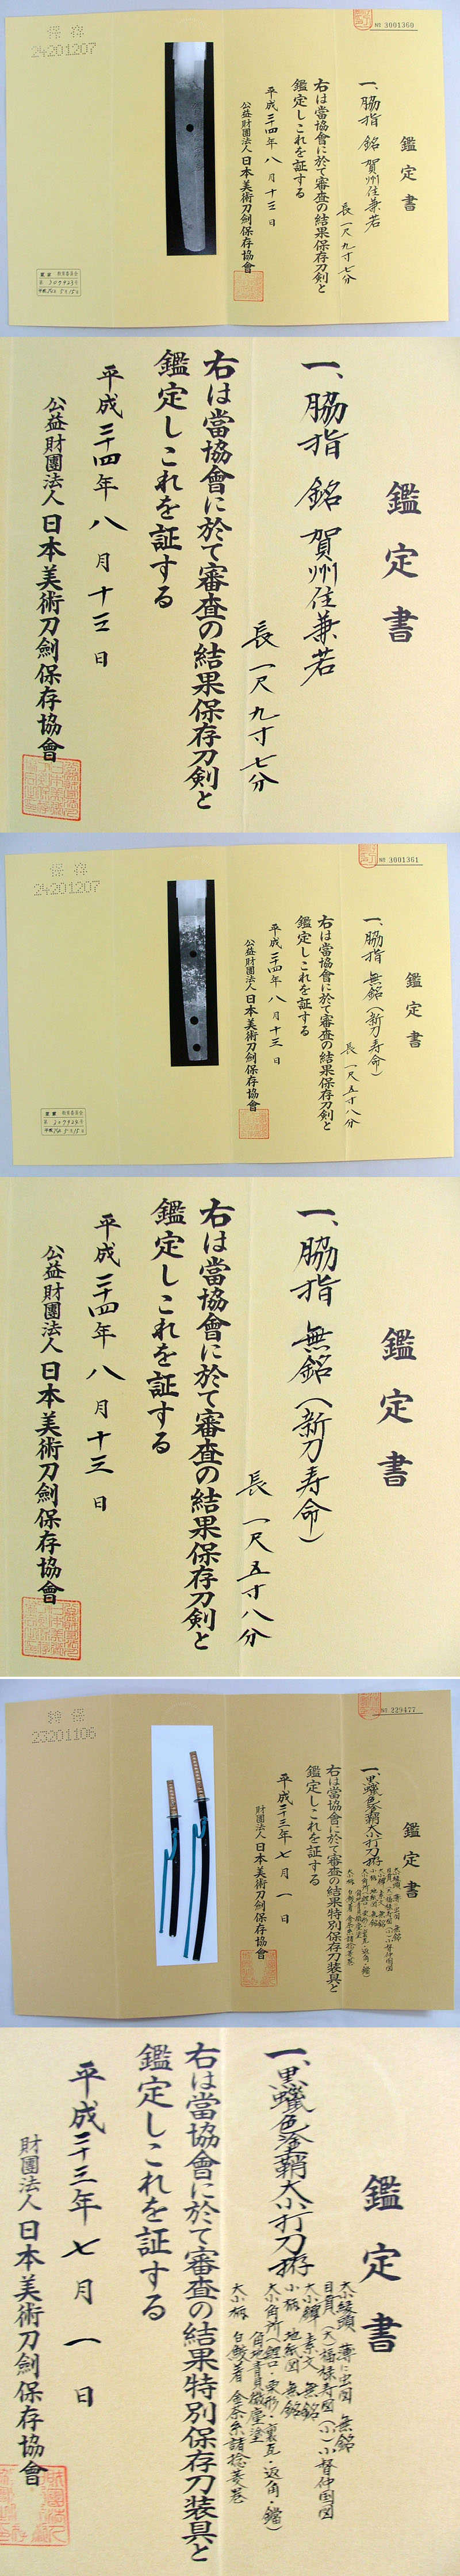 保存
24201207
№ 3001360
鑑定書
一、脇指 銘 賀州住兼若
長 一尺九寸七分
右は當協會に於て審査の結果保存刀剣と
鑑定しこれを証する
平成二十四年八月十三日
公益財團法人日本美術刀劍保存協會
鑑定書
一、脇指 銘 賀州住兼若
長 一尺九寸七分
右は當協會に於て審査の結果保存刀剣と
鑑定しこれを証する
平成二十四年八月十三日
公益財團法人日本美術刀劍保存協會
保存
24201207
№ 3001361
鑑定書
一、脇指 無銘(新刀寿命)
長 一尺五寸八分
右は當協會に於て審査の結果保存刀剣と
鑑定しこれを証する
平成二十四年八月十三日
公益財團法人日本美術刀劍保存協會
鑑定書
一、脇指 無銘(新刀寿命)
長 一尺五寸八分
右は當協會に於て審査の結果保存刀剣と
鑑定しこれを証する
平成二十四年八月十三日
公益財團法人日本美術刀劍保存協會
特保
23201106
№ 229477
鑑定書
一、黒蠟色塗鞘大小打刀拵
大小縁頭 薄に虫図 無銘
目貫(大)福禄寿図(小)小督仲国図
大小鐔 素文 無銘
小柄 地紙図 無銘
大小角所(鯉口・栗形・裏瓦・返角・鐺)
角地青貝微塵塗
大小柄 白鮫着 金茶糸諸捻菱巻
右は當協會に於て審査の結果特別保存刀装具と
鑑定しこれを証する
平成二十三年七月一日
財團法人日本美術刀劍保存協會
鑑定書
一、黒蠟色塗鞘大小打刀拵
大小縁頭 薄に虫図 無銘
目貫(大)福禄寿図(小)小督仲国図
大小鐔 素文 無銘
小柄 地紙図 無銘
大小角所(鯉口・栗形・裏瓦・返角・鐺)
角地青貝微塵塗
大小柄 白鮫着 金茶糸諸捻菱巻
右は當協會に於て審査の結果特別保存刀装具と
鑑定しこれを証する
平成二十三年七月一日
財團法人日本美術刀劍保存協會